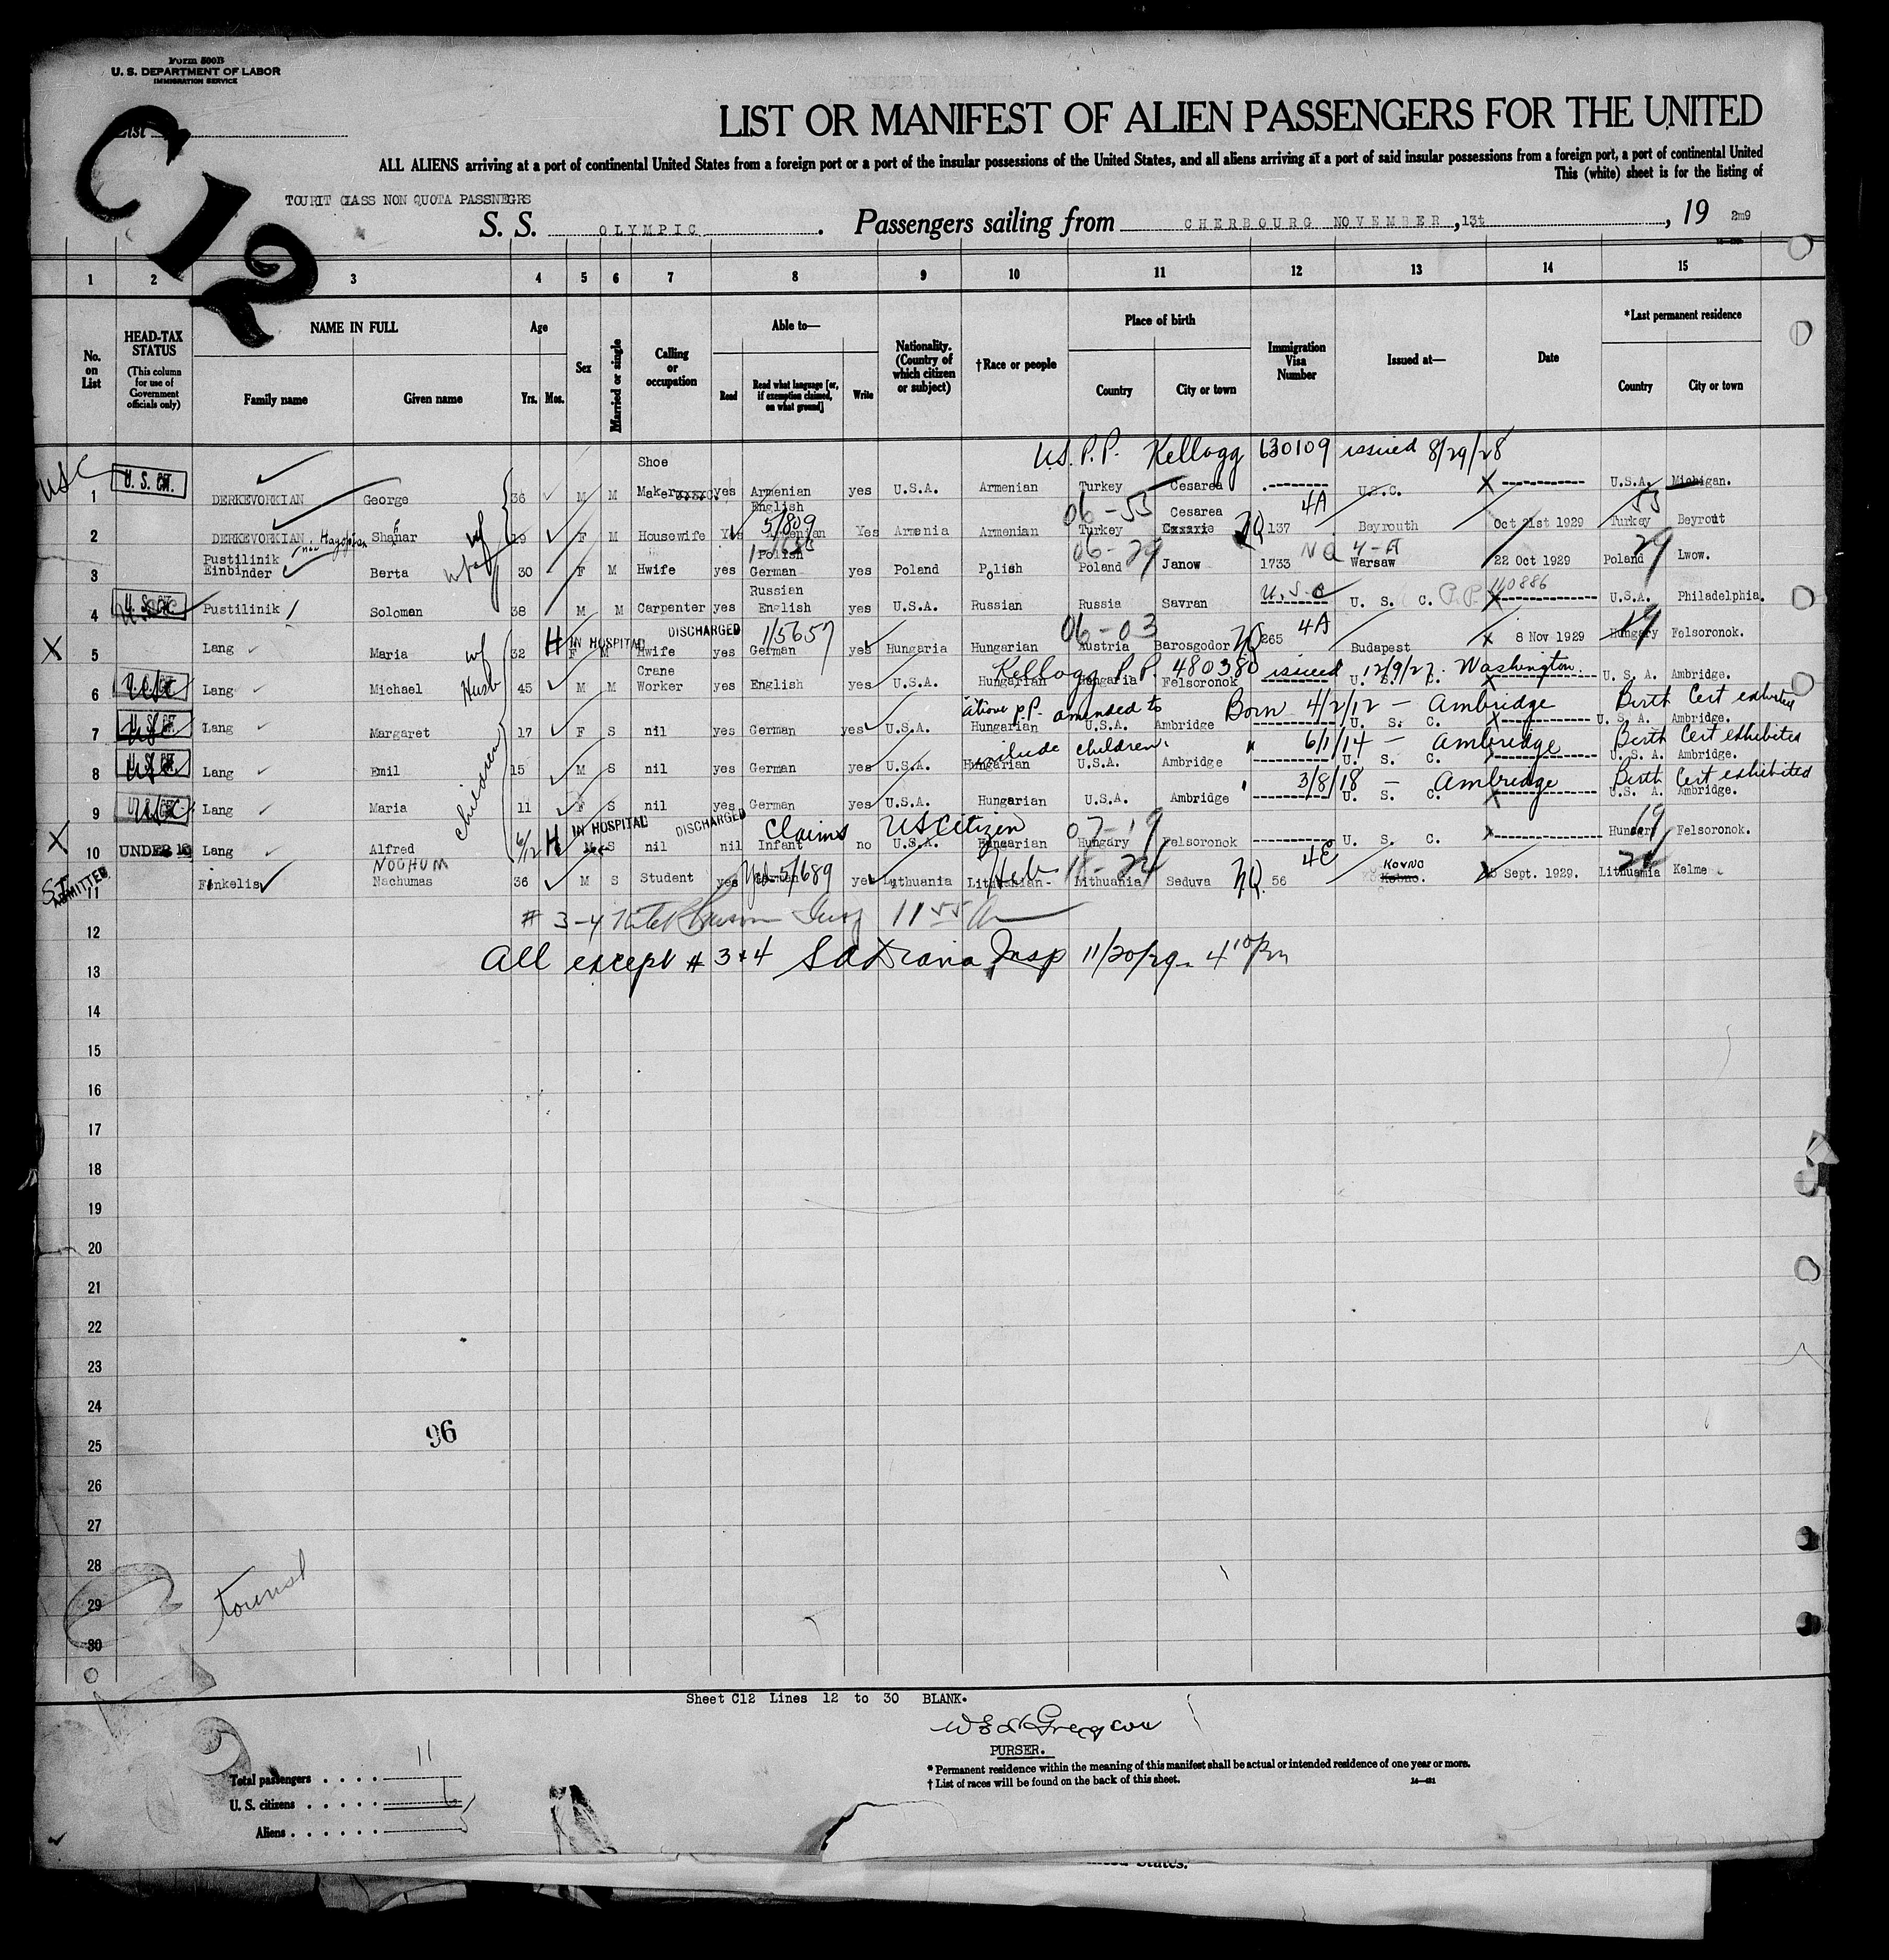 Form 500B
U. S. DEPARTMENT OF LABOR
IMMIGRATION SERVICE
List
C12
LIST OR MANIFEST OF ALIEN PASSENGERS FOR THE UNITED
ALL ALIENS arriving at a port of continental United States from a foreign port or a port of the insular possessions of the United States, and all aliens arriving at a port of said insular possessions from a foreign port, a port of continental United
This (white) sheet is for the listing of
TOURIT CLASS NON QUOTA PASSNEGRS
S. S. OLYMPIC. Passengers sailing from CHERBOURG NOVEMBER, 13t, 19 2m9
1 2 3 4 5 6 7 8 9 10 11 12 13 14 15
No. on List
HEAD-TAX STATUS (This column for use of Government officials only)
NAME IN FULL Family name Given name
Age Yrs. Mos.
Sex
Married or single
Calling or occupation
Able to— Read Read what language [or, if exemption claimed, on what ground] Write
Nationality. (Country of which citizen or subject)
†Race or people
Place of birth Country City or town
Immigration Visa Number
Issued at—
Date
*Last permanent residence Country City or town
U.S. P.P. Kellogg 630109 issued 8/29/28
USC 1 U. S. CIT. DERKEVORKIAN George 36 M M Shoe Maker yes Armenian English yes U.S.A. Armenian Turkey Cesarea U.S.C. U.S.A. Michigan.
2 DERKEVORKIAN. Hagopian Shanar wf 29 F M Housewife Yes Armenian 5/809 Yes Armenia Armenian 06-55 Turkey Cesarea NQ 137 4A Beyrouth Oct 21st 1929 Turkey 55 Beyrout
3 Pustilinik Einbinder Berta wife 30 F M Hwife yes Polish German yes Poland Polish 06-29 Poland Janow 1733 NQ 4-A Warsaw 22 Oct 1929 Poland 29 Lwow.
4 U. S. CIT. Pustilinik Soloman 38 M M Carpenter yes Russian English yes U.S.A. Russian Russia Savran U.S.C U. S. C. P.P. 110886 U.S.A. Philadelphia.
X 5 Lang Maria wf 32 H IN HOSPITAL DISCHARGED F M Hwife yes German 1/5657 yes Hungaria Hungarian 06-03 Austria Barosgodor NQ 265 4A Budapest 8 Nov 1929 Hungary 19 Felsoronok.
6 USC Lang Michael Husb 45 M M Crane Worker yes English yes U.S.A. Hungarian Hungaria Felsoronok U. S. C. U. S. A. Ambridge.
Kellogg P.P. 480380 issued 12/9/27. Washington.
7 U. S. CIT. USC Lang Margaret 17 F S nil yes German yes U.S.A. Hungarian U.S.A. Ambridge U. S. C. U. S. A. Ambridge.
above P.P. amended to Born 4/2/12 - Ambridge Birth Cert exhibited
8 U. S. CIT. USC Lang Emil 15 M S nil yes German yes U.S.A. Hungarian U.S.A. Ambridge U. S. C. U. S. A. Ambridge.
include children. " 6/1/14 - Ambridge Birth Cert exhibited
children
9 USC Lang Maria 11 F S nil yes German yes U.S.A. Hungarian U.S.A. Ambridge U. S. C. U.S. A. Ambridge.
" 3/8/18 - Ambridge Birth Cert exhibited
X 10 UNDER 16 Lang Alfred 6/12 H IN HOSPITAL DISCHARGED M S nil nil Infant no U.S.A. Hungarian Hungary Felsoronok U. S. C. Hungary 19 Felsoronok.
Claims US Citizen 07-19
ADMITTED 11 Finkelis NOCHUM Nachumas 36 M S Student yes German 5/689 yes Lythuania Lithuanian Heb Lithuania Seduva NQ 56 4E KOVNO Kobno. 5 Sept. 1929. Lithuania Kelme
12 # 3-4 11 55 A
13 All except # 3 & 4 Insp 11/20/29 - 4 10 Pm
14
15
16
17
18
19
20
21
22
23
24
96
25
26
27
28
29 tourist
30
Sheet C12 Lines 12 to 30 BLANK.
PURSER.
* Permanent residence within the meaning of this manifest shall be actual or intended residence of one year or more.
† List of races will be found on the back of this sheet.
Total passengers . . . . 11
U. S. citizens . . . . . 6
Aliens . . . . . . 5